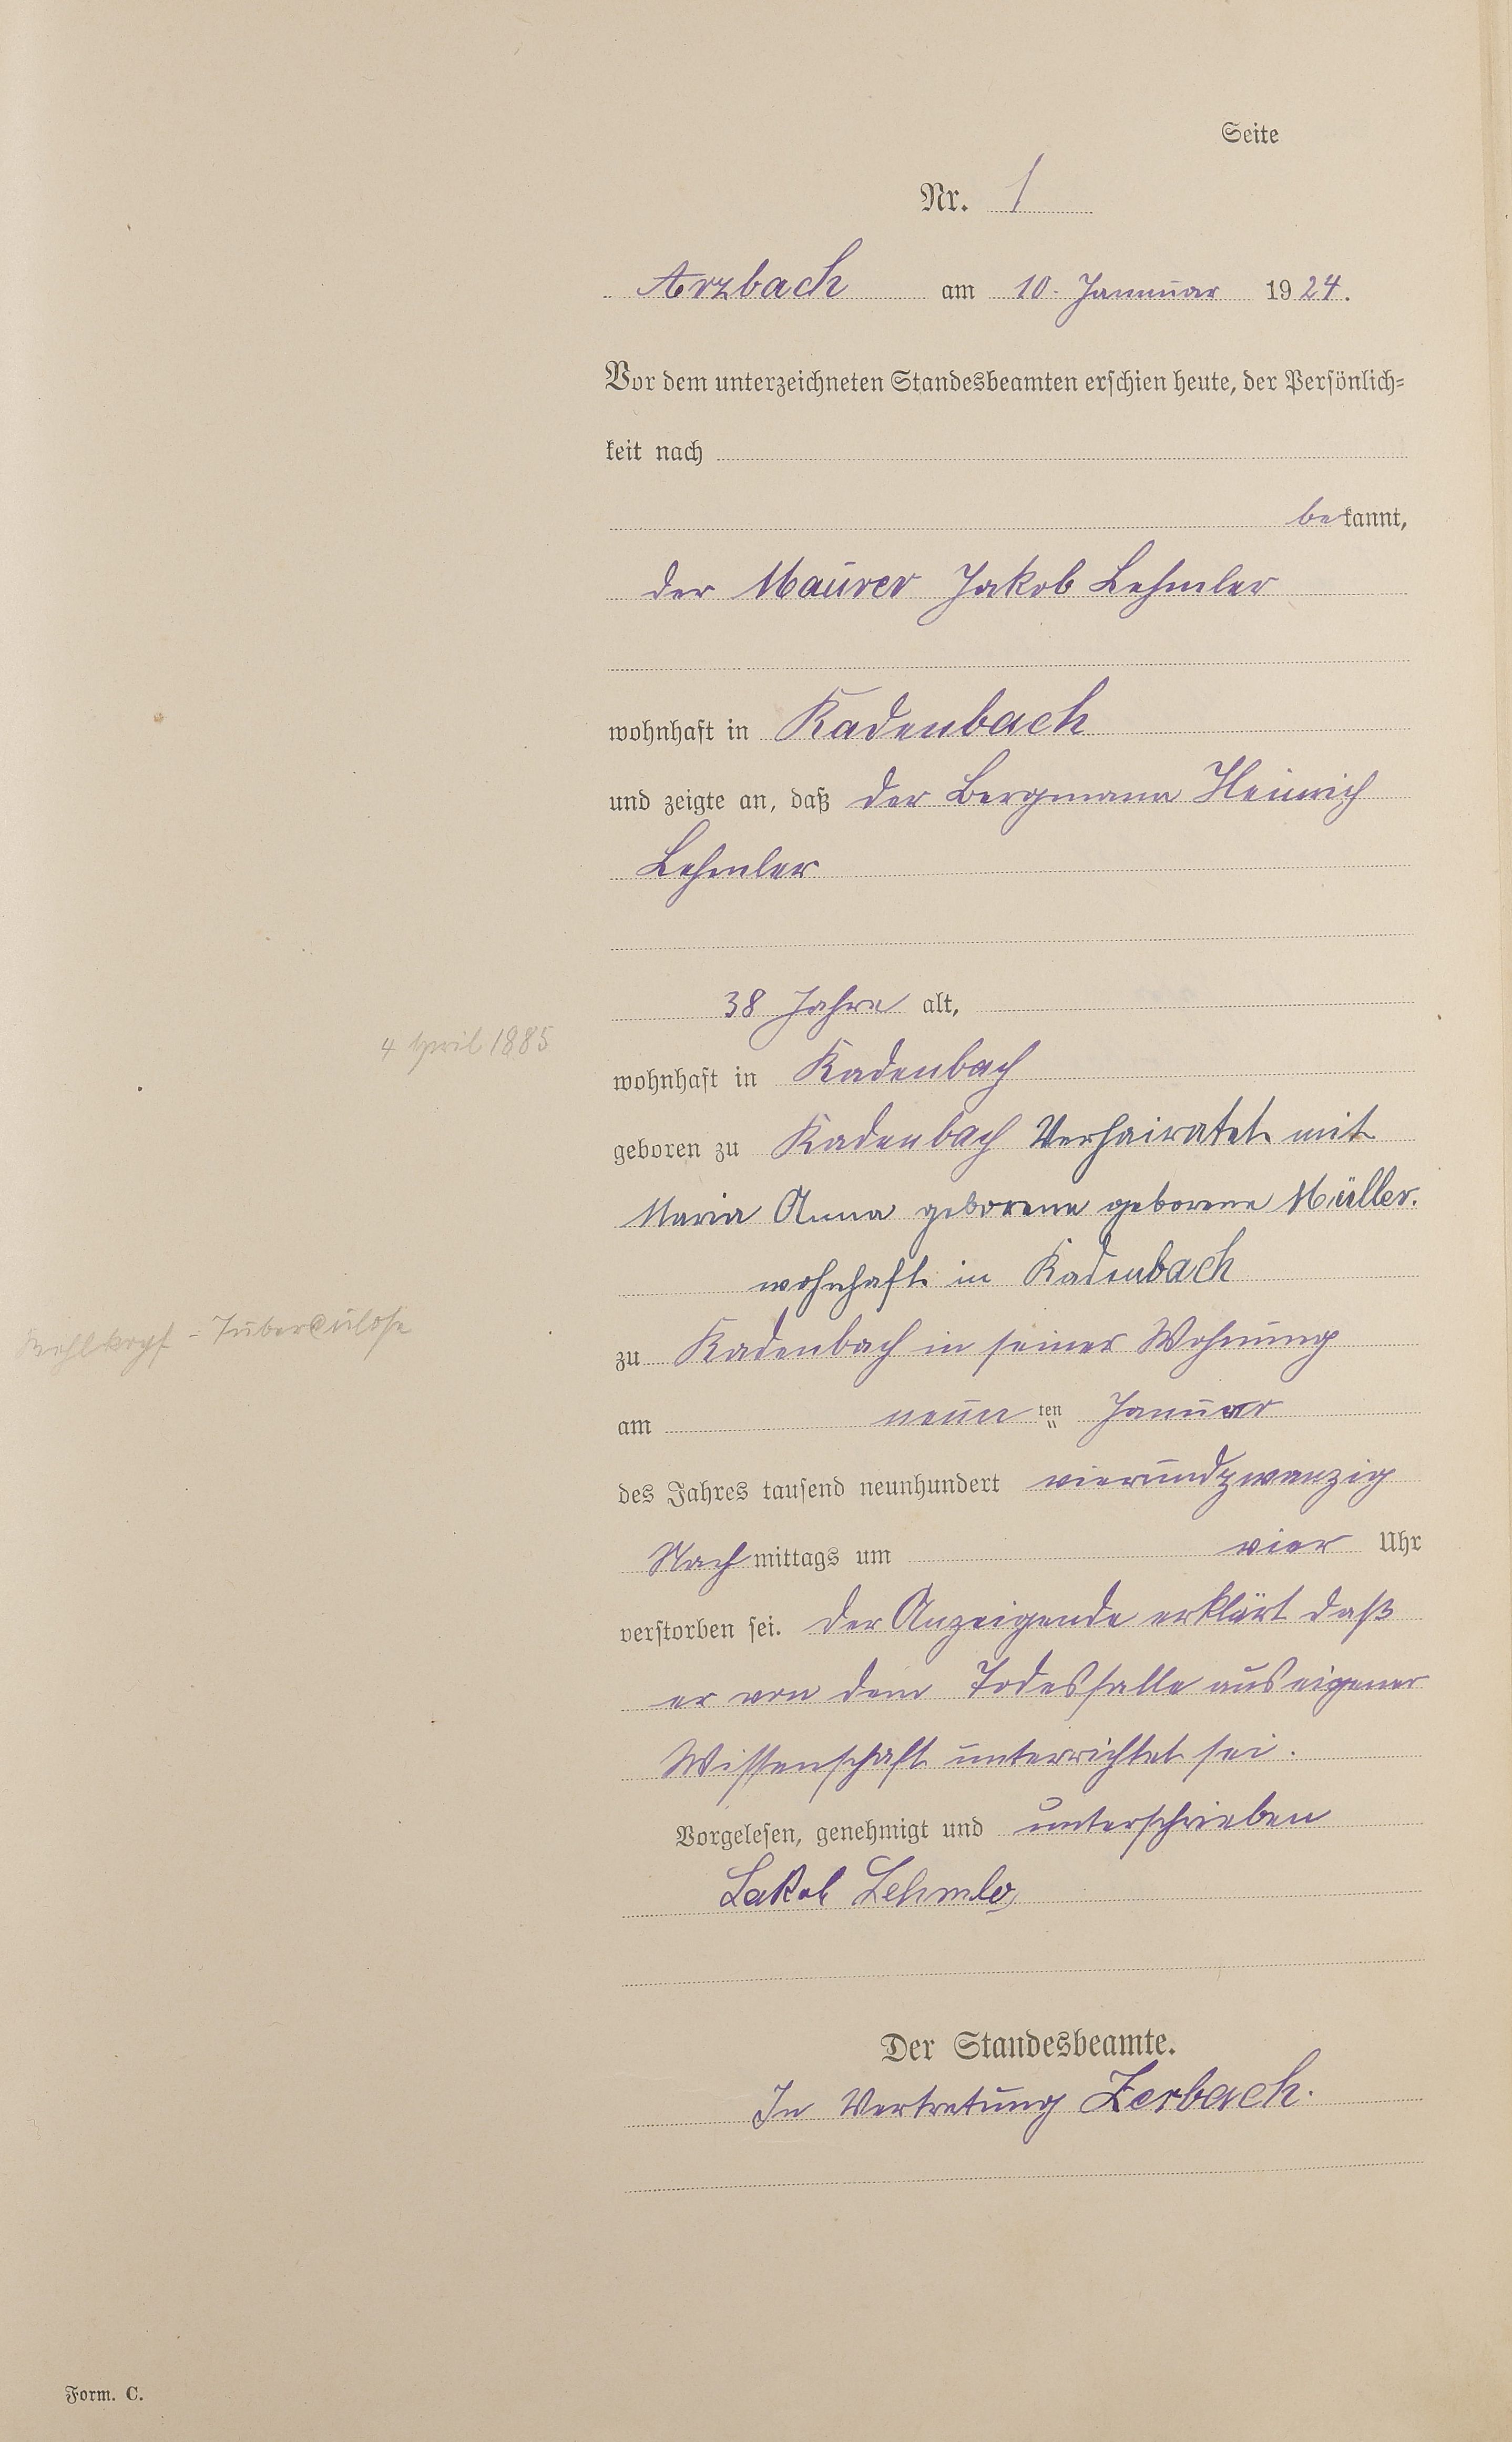 Seite
Nr. 1
Arzbach am 10. Januar 1924.
Vor dem unterzeichneten Standesbeamten erschien heute, der Persönlich=
keit nach
bekannt,
der Maurer Jakob Lehmler
wohnhaft in Kadenbach
und zeigte an, daß der Bergmann Heinrich
Lehmler
38 Jahre alt,
4 April 1885
wohnhaft in Kadenbach
geboren zu Kadenbach Verheiratet mit
Maria Anna geborene geborene Müller.
wohnhaft in Kadenbach
Kehlkopf = Tuberculose
zu Kadenbach in seiner Wohnung
am neun ten Januar
des Jahres tausend neunhundert vierundzwanzig
Nachmittags um vier Uhr
verstorben sei. Der Anzeigende erklärt daß
er von dem Todesfalle aus eigener
Wissenschaft unterrichtet sei.
Vorgelesen, genehmigt und unterschrieben
Jakob Lehmler
Der Standesbeamte.
In Vertretung Zerbach.
Form. C.